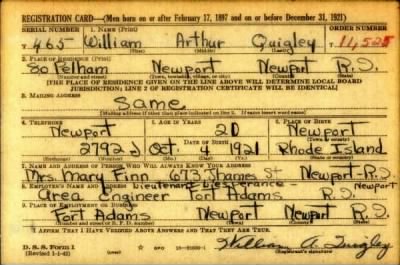 REGISTRATION CARD—(Men born on or after February 17, 1897 and on or before December 31, 1921)
SERIAL NUMBER 1. NAME (Print) ORDER NUMBER
T 465 William Arthur Quigley T 11,525
(First) (Middle) (Last)
2. PLACE OF RESIDENCE (Print)
30 Pelham Newport Newport R.I.
(Number and street) (Town, township, village, or city) (County) (State)
[THE PLACE OF RESIDENCE GIVEN ON THE LINE ABOVE WILL DETERMINE LOCAL BOARD
JURISDICTION; LINE 2 OF REGISTRATION CERTIFICATE WILL BE IDENTICAL]
3. MAILING ADDRESS
Same
[Mailing address if other than place indicated on line 2. If same insert word same]
4. TELEPHONE 5. AGE IN YEARS 6. PLACE OF BIRTH
Newport 20 Newport
DATE OF BIRTH (Town or county)
2792 J Oct. 4 1921 Rhode Island
(State or country)
7. NAME AND ADDRESS OF PERSON WHO WILL ALWAYS KNOW YOUR ADDRESS
Mrs. Mary Finn 673 Thames St Newport-R.I.
8. EMPLOYER'S NAME AND ADDRESS Lieutenant Newport
Area Engineer Fort Adams R.I.
9. PLACE OF EMPLOYMENT OR BUSINESS
Fort Adams Newport Newport R.I.
(Number and street or R. F. D. number) (Town) (County) (State)
I AFFIRM THAT I HAVE VERIFIED ABOVE ANSWERS AND THAT THEY ARE TRUE.
D. S. S. Form 1
(Revised 1-1-42) (over) GPO William A. Quigley
(Registrant's signature)